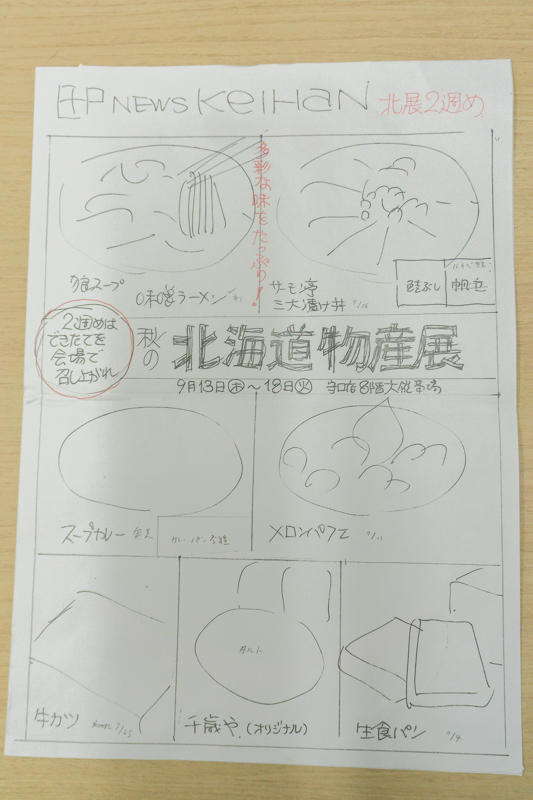 NEWS KEIHAN 北展2週め
多彩な味をたっぷり!
スープ
味噌ラーメン
サーモン
三大漬け丼
鮭ぶし
帆立
2週めは
できたてを
会場で
召し上がれ
秋の
北海道物産展
9月13日㊍〜18日㊋ 守口店8階大催事場
スープカレー
メロンパフェ
タルト
牛カツ
千歳や(オリジナル)
生食パン